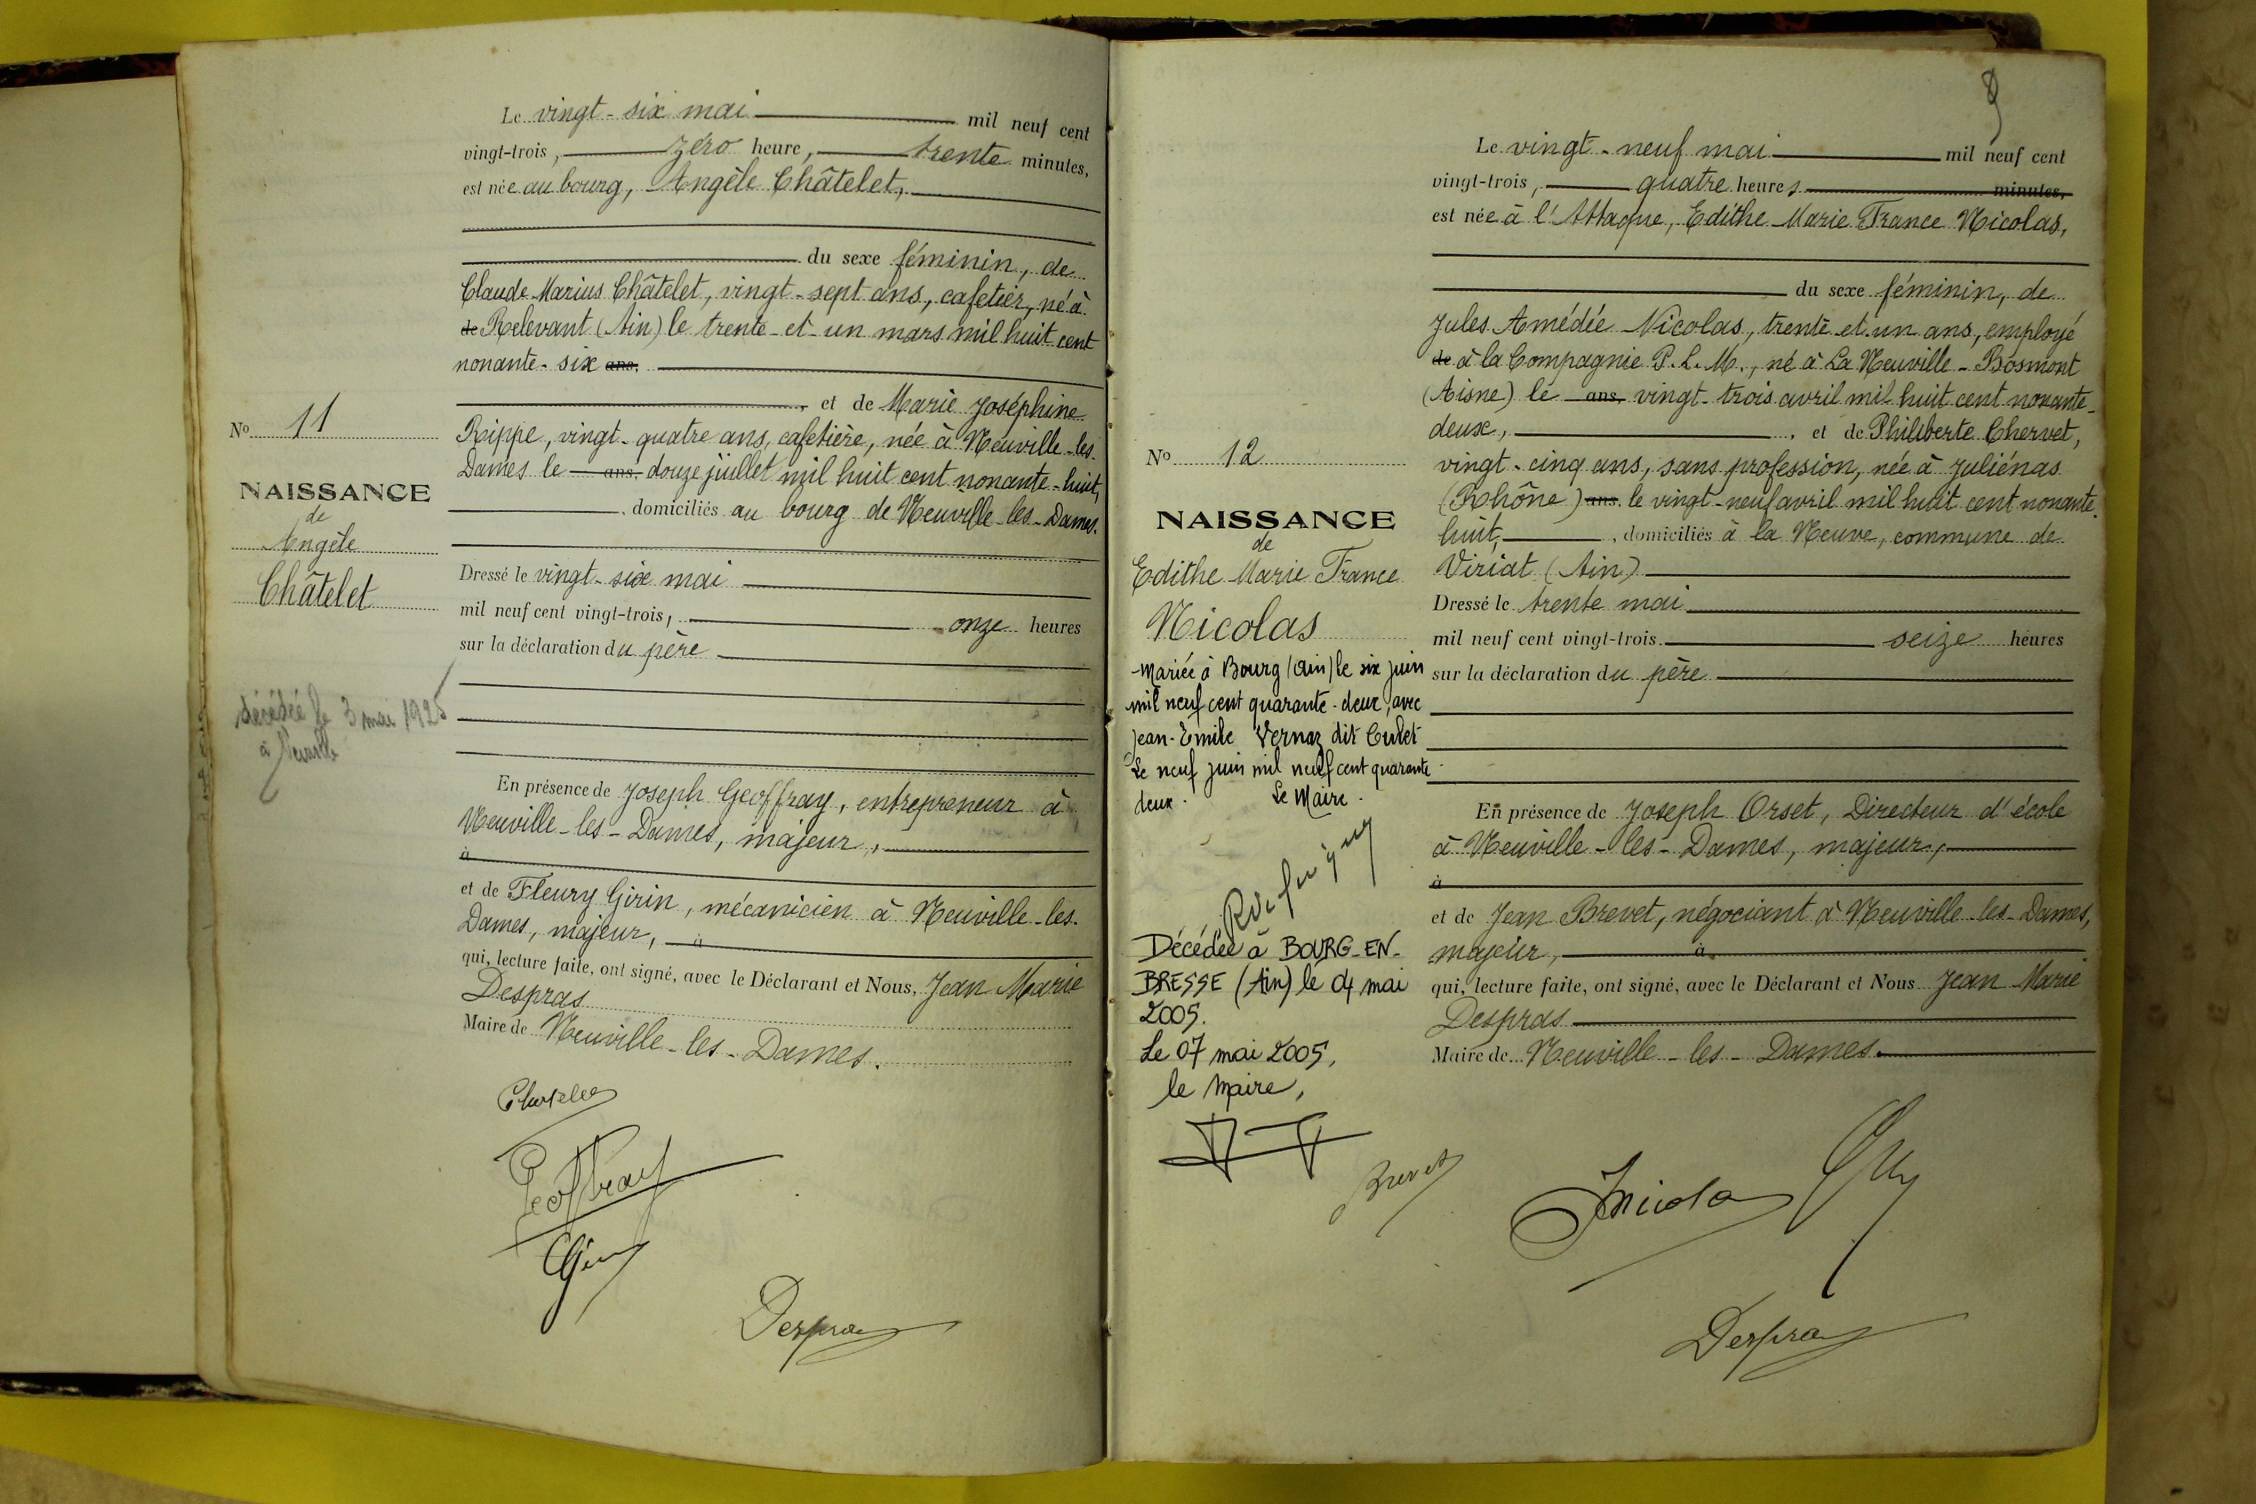 Le vingt-six mai mil neuf cent
vingt-trois, zéro heure, trente minutes,
est née au bourg, Angèle Châtelet,
du sexe féminin, de
Claude-Marius Châtelet, vingt-sept ans, cafetier, né à
de Relevant (Ain) le trente-et-un mars mil huit cent
nonante-six ans.
, et de Marie Joséphine
Rippe, vingt-quatre ans, cafetière, née à Neuville-les-
Dames le ans, douze juillet mil huit cent nonante-huit,
, domiciliés au bourg de Neuville-les-Dames.
Dressé le vingt-six mai
mil neuf cent vingt-trois, onze heures
sur la déclaration du père
En présence de Joseph Geoffray, entrepreneur à
Neuville-les-Dames, majeur,
à
et de Fleury Girin, mécanicien à Neuville-les-
Dames, majeur, à
qui, lecture faite, ont signé, avec le Déclarant et Nous, Jean Marie
Despras
Maire de Neuville-les-Dames.
No 11
NAISSANCE
de
Angèle
Châtelet
décédée le 3 mai 1925
à Neuville
Geoffray
Despras
9
Le vingt-neuf mai mil neuf cent
vingt-trois, quatre heures minutes,
est née à l'Attaque, Edithe Marie France Nicolas,
du sexe féminin, de
Jules Amédée Nicolas, trente-et-un ans, employé
de à la Compagnie P.L.M., né à La Neuville-Bosmont
(Aisne) le ans, vingt-trois avril mil huit cent nonante-
deux, , et de Philiberte Chervet,
vingt-cinq ans, sans profession, née à Juliénas
(Rhône) ans, le vingt-neuf avril mil huit cent nonante-
huit, , domiciliés à la Neuve, commune de
Viriat (Ain)
Dressé le trente mai
mil neuf cent vingt-trois seize heures
sur la déclaration du père
En présence de Joseph Orset, Directeur d'école
à Neuville-les-Dames, majeur,
à
et de Jean Brevet, négociant à Neuville-les-Dames,
majeur, à
qui, lecture faite, ont signé, avec le Déclarant et Nous Jean Marie
Despras
Maire de Neuville-les-Dames.
No 12
NAISSANCE
de
Edithe Marie France
Nicolas
Mariée à Bourg (Ain) le six juin
mil neuf cent quarante-deux, avec
Jean-Emile Vernaz dit Culet
Le neuf juin mil neuf cent quarante-
deux. Le Maire.
Décédée à BOURG-EN-
BRESSE (Ain) le 04 mai
2005.
Le 07 mai 2005,
le Maire,
Brevet
Despras